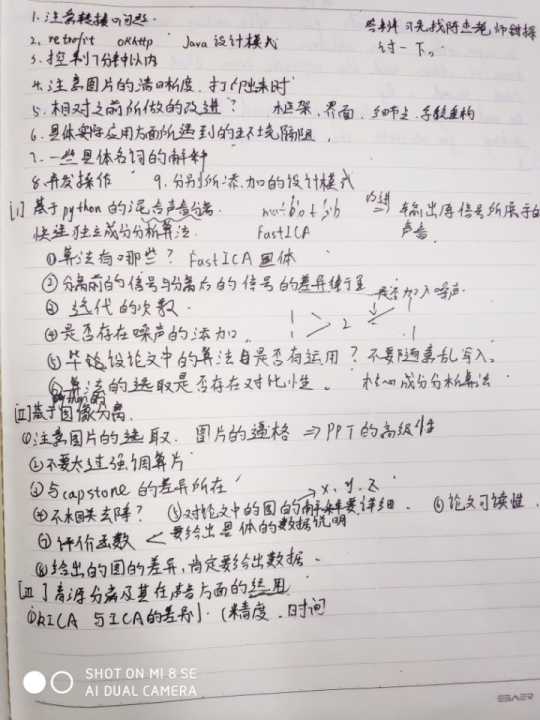 1. 注意转接口问题.
答辩可先找陈杰老师
讨一下。
2. retrofit okhttp Java 设计模式
3. 控制7分钟以内
4. 注意图片的清晰度, 打印出来时
5. 相对之前所做的改进? 框架, 界面, 细节上, 重构
6. 具体实际应用方面所遇到的环境隔阻,
7. 一些具体名词的解释
8. 并发操作 9. 分别所添加的设计模式
[I] 基于python的混合声音分离. 改进 输出原信号所展示的
快速独立成分分析算法. FastICA 声音.
①算法有哪些? FastICA 具体
②分离前的信号与分离后的信号的差异 是否加入噪声.
③迭代的次数.
④是否存在噪声的添加. 2
⑤毕设论文中的算法自是否有运用? 不要随意乱写入。
⑥算法的选取是否存在对比性。 核心成分分析算法
[II] 基于图像分离.
①注意图片的选取. 图片的通格 ⇒ PPT的高级性
②不要太过强调算片
③与capstone的差异所在 x. y. z
④不相关去除? ⑤对论文中的图的解释要详细. ⑥论文可读性.
⑦评价函数 < 要给出具体的数据说明
⑧给出的图的差异, 肯定要给出数据.
[III] 盲源分离及其在声音方面的运用
①RICA 与ICA的差别. (精度. 时间
SHOT ON MI 8 SE
AI DUAL CAMERA